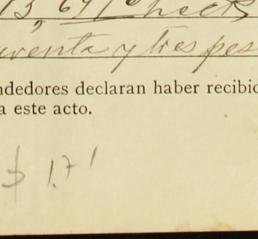 13,691 Check
uventa y tres pes
ndedores declaran haber recibid
a este acto.
$ 1.71